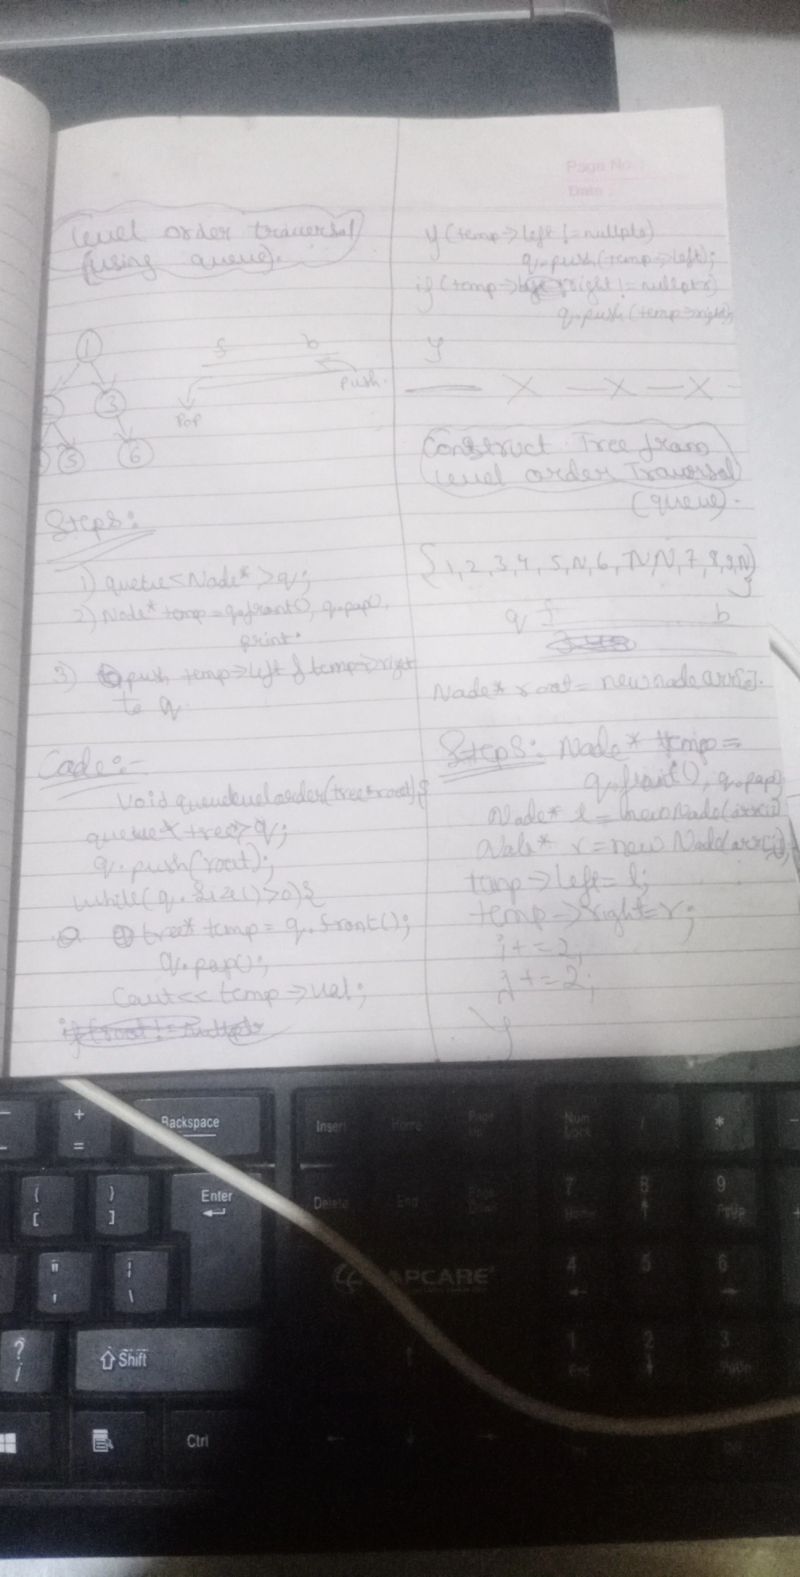 Level order traversal
(using queue).
1
2
3
5
6
f b
push.
Pop
Steps:
1) queue<Node*>q;
2) Node* temp = q.front(), q.pop(),
print.
3) push temp->left & temp->right
to q
Code:-
void queuelevelorder(tree*root){
queue<tree*>q;
q.push(root);
while(q.size()>0){
tree* temp = q.front();
q.pop();
Cout<<temp->val;
if(root!=nullptr
Page No.:
Date:
if(temp->left!=nullptr)
q.push(temp->left);
if(temp->right!=nullptr)
q.push(temp->right);
}
X X X
Construct Tree from
level order Traversal
(queue).
{1,2,3,4,5,N,6,N,N,7,8,9,N}
q f b
Node* root = new node arr[0].
Steps: Node* temp =
q.front(), q.pop()
Node* l = new Node(arr[i])
Node* r = new Node(arr[j]);
temp->left=l;
temp->right=r;
i+=2;
j+=2;
}
+
=
Backspace
Insert
Home
Page
Up
Num
Lock
*
{
[
}
]
Enter
Delete
End
7
8
9
PgUp
"
'
\
APCARE
4
5
6
?
/
Shift
1
2
3
Ctrl